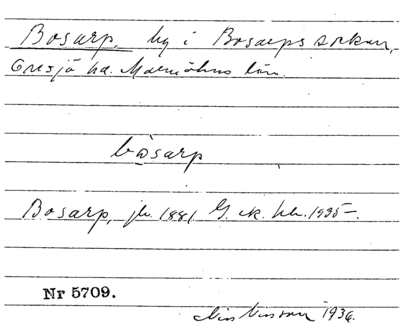 Bosarp, by i Bosarps socken,
Onsjö hd. Malmöhus län.
bosarp
Bosarp, jb. 1881 G. ek. kbl. 1935–.
Nr 5709.
Nils Nilsson 1936.